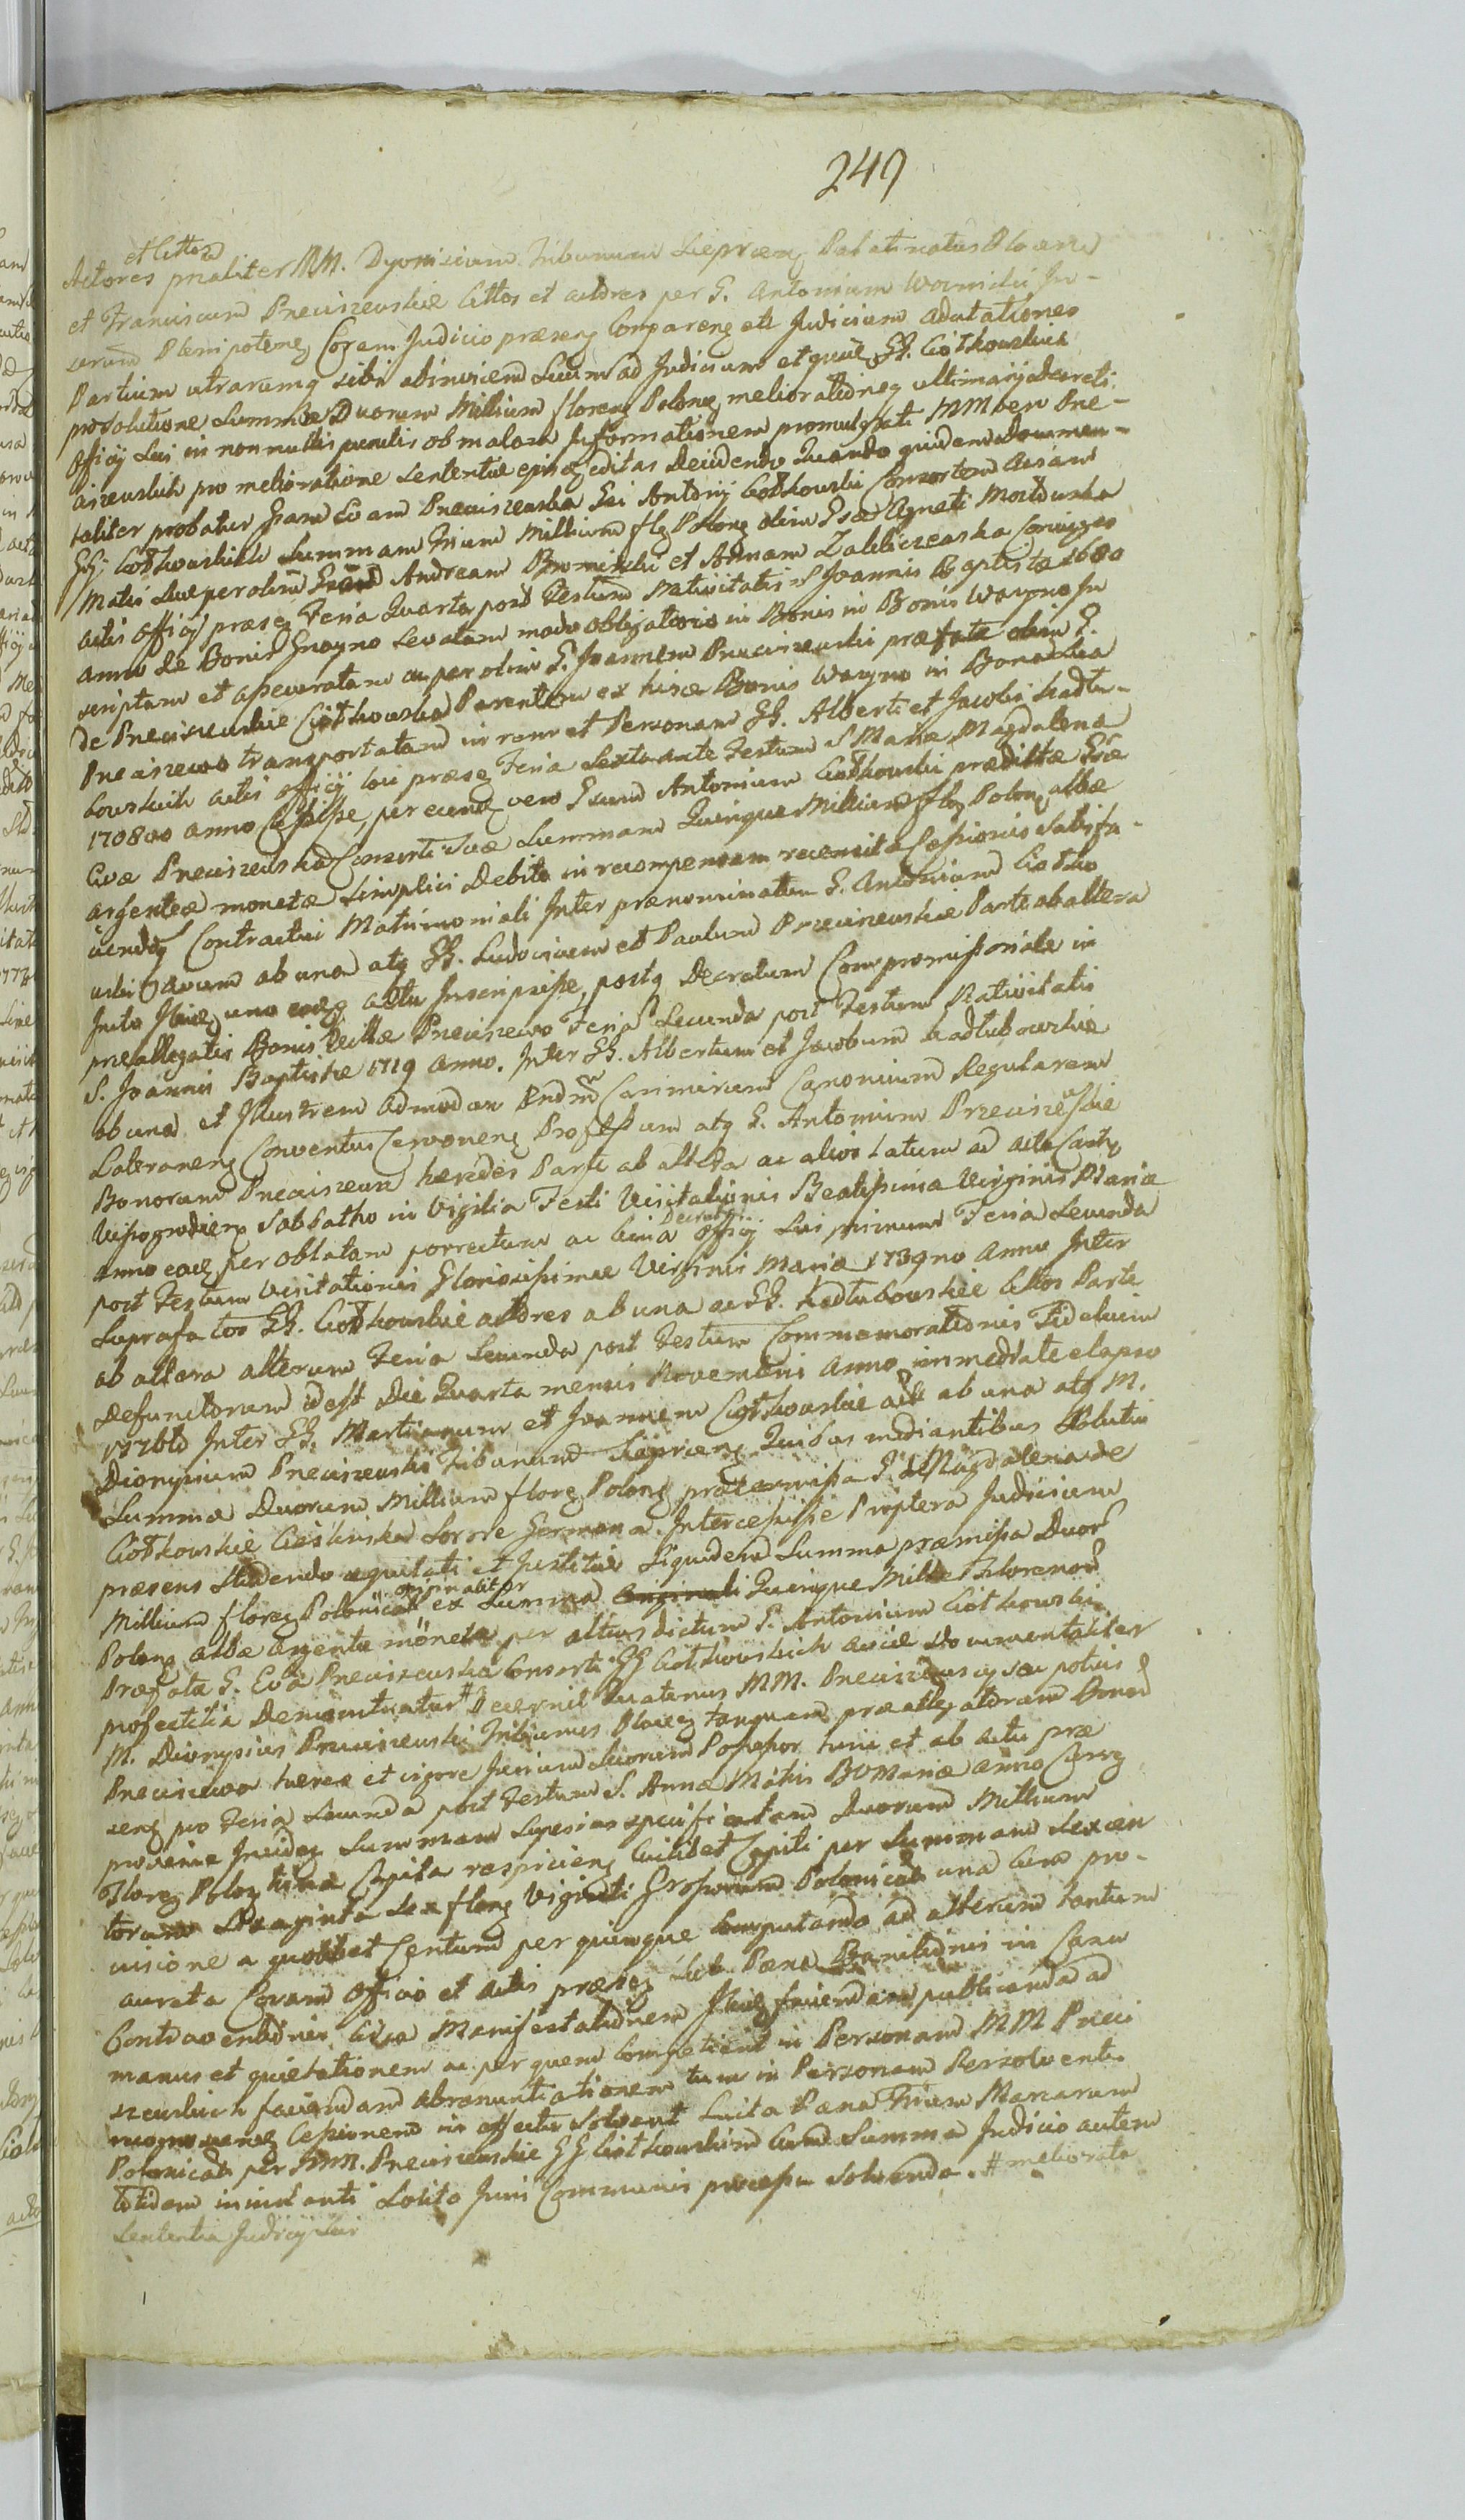 249
et Cittos
Actores pnaliter MM. Dyonisium Tribunum Palatinatus
et Franciscum Preciszewskie Cittos et actores per G. Antonium
Plenipoten Coram Judicio præsen Comparen ete Judicium adcitationes
Partium utrarumq sibi abinvicem Suum ad Judicium G. Ciotkowskich
persolutione Summæ Duorum Millium floren Polon meliorationeq ultimarij decreti
Officij Sui in nonnullis punctis ob malam Informationem promulgati MM vero Pre-
ciszewskich pro melioratione sententiæ editas Decidendo Quando quidem documen-
taliter probatur Evam Preciszewska Antonij Ciotkowski Consortem
GG. Ciotkowskich Summam Trium Millium fl Polon olim Agneti
Matri Suæ per olim Andream et Annam Conjuges
actis Officij præsen Feria Quarta post Festum Nativitatis S Joannis Baptistæ 1680
anno de Bonis Gnayno levatam modo obligatorio in Bonis in Bonis Wayno In
scriptam et asseveratam ac per olim G. Joannem Preciszewski præfatæ olim G.
de Preciszewskie Ciotkowska Parentem ex hisce Bonis Wayno in Bona sua
Preciszewo transportatam in rem et Personam GG. Alberti et Jacobi Kadłu-
bowskich actis Officij Sui præsen Feria Sexta ante Festum S Mariæ Magdalenæ
1708vo anno Cessisse, per eund vero Antonium Ciotkowski prædictæ
Evæ Preciszewska Consorti Suæ Summam Quinque Millium fl Polon albæ
argenteæ monetæ Simplici Debito in recompensam recensitæ Cessionis Satisfa-
ciendoq Contractui Matrimoniali Inter prænominatum G. Antonium Ciotko
wski avum ab una atq GG. Ludovicum et Paulum Preciszewskie Parte ab altera
Inito uno eodq actu Inscripsisse, postq Decretum Compromissoriale in
preallegatis Bonis Villæ Preciszewo Feria Secunda post Festum Nativitatis
S. Joannis Baptistæ 1719 anno. Inter GG. Albertum et Jacobum Kadłubowskie
ab una et Illustrem admodum Rndm Casimirum Canonicum Regularem
Lateranen Conventus Professum atq G. Antonium Preciszewskie
Bonorum Preciszewo hæredes Parte ab altera ac alios latum ad acta Castr
Wyszogrodien Sabbatho in Vigilia Festi Visitationis Beatissimæ Virginis Mariæ
anno eod per oblatam porrectum ac bina Decreta Officij Sui primum Feria Secunda
post Festum Visitationis Gloriosissimæ Virginis Mariæ 1739no anno Inter
Suprafatos GG. Ciotkowskie actores ab una ac GG. Kadłubowskie Cittos Parte
ab altera alterum Feria Secunda post Festum Commemorationis Fidelium
Defunctorum id est Die Quarta mensis Novembris anno immediate elapso
Inter GG. Martianum et Joannem Ciotkowskie ab una atq M.
Dionysium Preciszewski Tribunum Quibus mediantibus Solutio
Summæ Duorum Millium floren Polon præcemissa G. Magdalena de
Ciotkowskie Sorore Germana. Intercessisse Proptera Judicium
præsens Studendo æquitati et Justitiæ Siquidem Summa præmissa Duor
Millium floren Polonical originaliter ex Summa originali Quinque Mille Florenor
Polon albæ argenteæ monetæ per altius dictum G. Antonium Ciotkowski
Præfatæ G. Eva Preciszewska Consorti GG Ciotkowskich aviæ documentaliter
profectitia Demonstratur # Decernit Quatenus MM. Preciszewscy seu potius
M. Dionysius Preciszewski Tribunus tanquam præallegatorum Bonor
Preciszewo hæres et vigore Jurium Suorum Possessor hunc et ab actu præ
sen pro Feria Secunda post Festum S. Annæ Matris BVMariæ anno Curr
proxime Inciden Summam Superius specificatam Duorum Millium
Floren Polon trina Capita respicien Cuilibet Capiti per Summam Sexcen
torum Sexaginta Sex floren Viginti Grossorum Polonical una Cum pro-
visione a quolibet Centum per quinque computando ad alterum tantum
aucta Coram Officio et actis præsen sub Pæna Banitionis in Casu
Contraventionis Circa Manifestationem faciendam publicanda ad
manus et quietationem ac per quem Competient in Personam MM Preci
szewskich faciendam abrenuntiationem tum in Personam Resolventi
Cessionem in effectu Solvent Luita Pæna Trium Marcarum
Polonical per MM. Preciszewskie GG Ciotkowskim Cum Summa Judicio autem
totidem in instanti Solita Juri Communis processu Solvenda. # meliorata
Sententia Judicij Sui